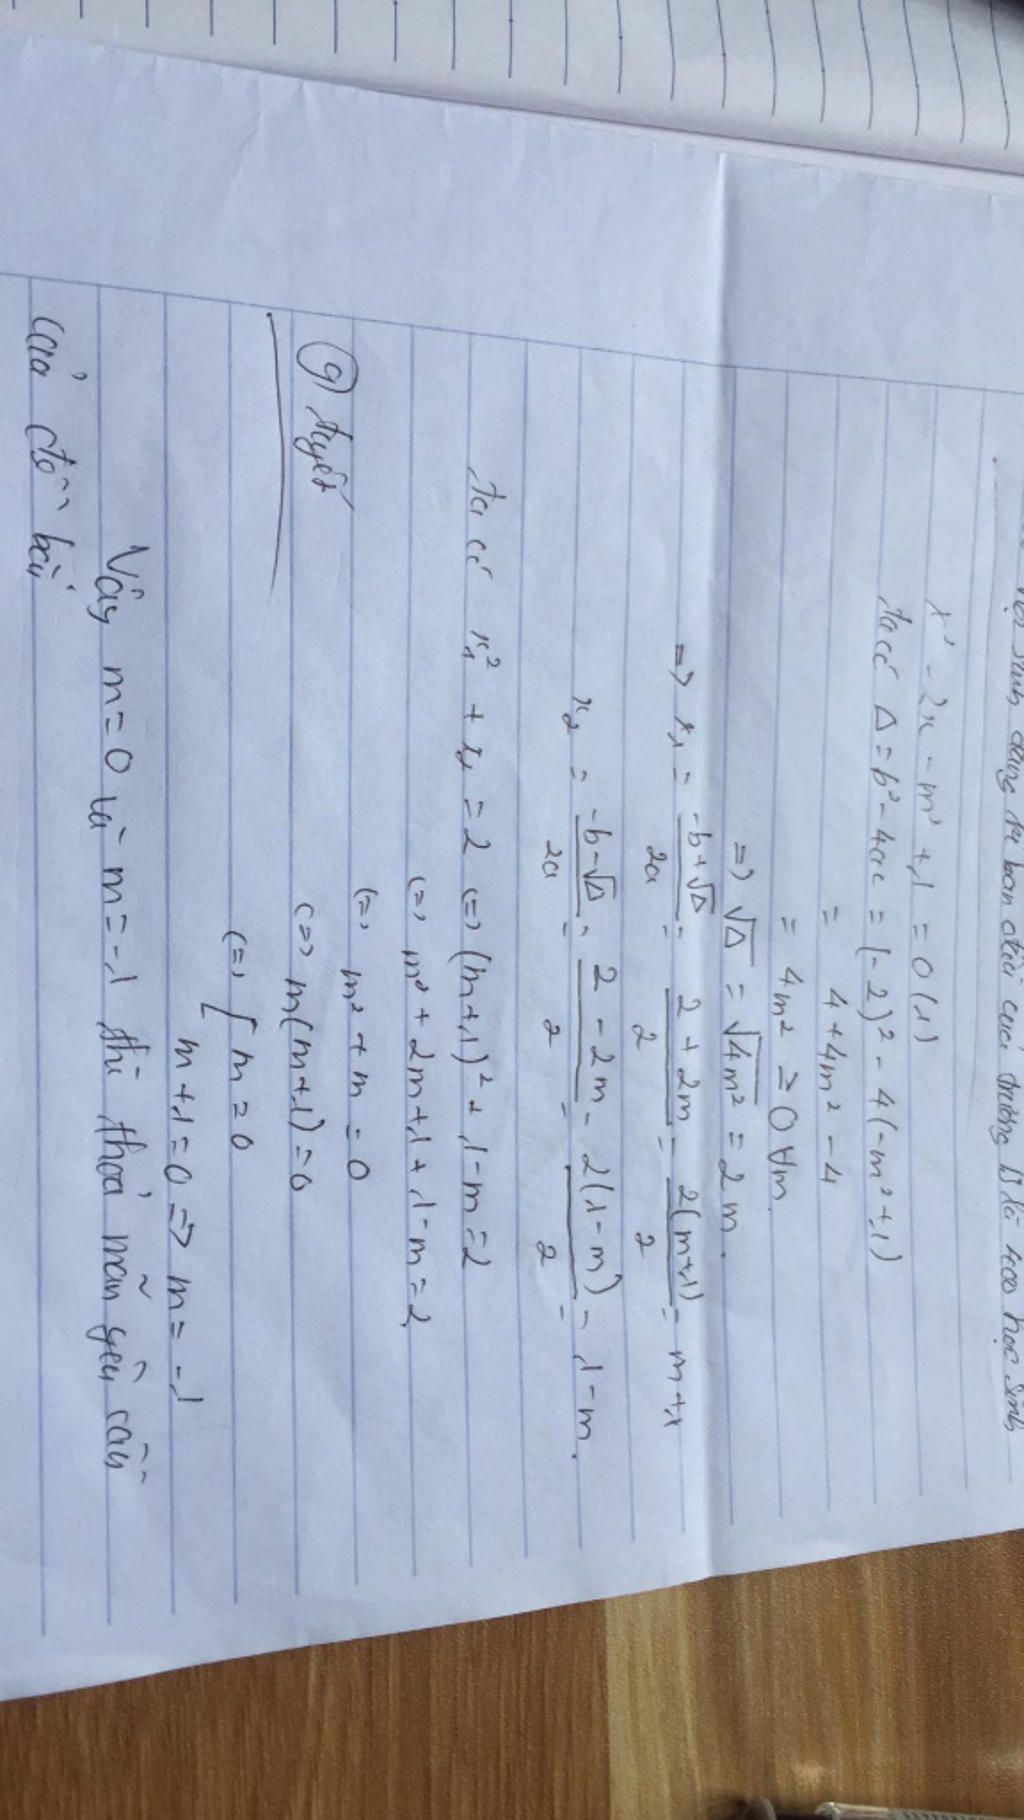 sinh đăng kí ban đầu của trường B là 400 học sinh
x² - 2x - m² + 1 = 0 (1)
ta có Δ = b² - 4ac = (-2)² - 4(-m² + 1)
= 4 + 4m² - 4
= 4m² ≥ 0 ∀m
=> √Δ = √4m² = 2m.
=> x₁ = -b+√Δ/2a = 2+2m/2 = 2(m+1)/2 = m+1
x₂ = -b-√Δ/2a = 2-2m/2 = 2(1-m)/2 = 1-m.
ta có x₁² + x₂ = 2 <=> (m+1)² + 1-m = 2
<=> m² + 2m + 1 + 1 - m = 2
<=> m² + m = 0
<=> m(m+1) = 0
9) tuyết
<=> [ m = 0
m + 1 = 0 => m = -1
Vậy m = 0 và m = -1 thì thoả mãn yêu cầu
của đề bài